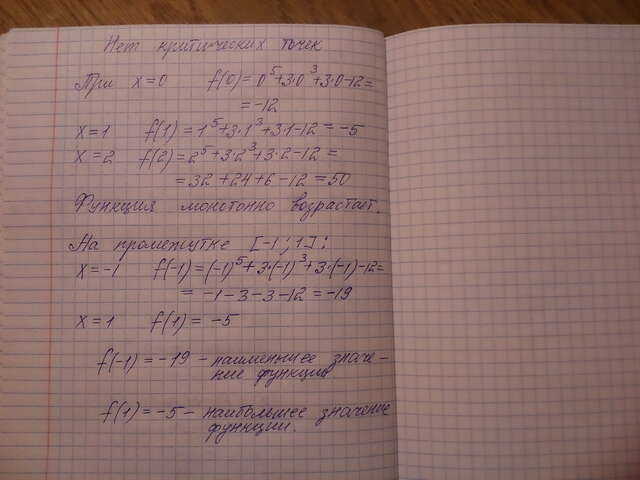 Нет критических точек
При x=0 f(0)=0⁵+3·0³+3·0-12=
=-12
x=1 f(1)=1⁵+3·1³+3·1-12=-5
x=2 f(2)=2⁵+3·2³+3·2-12=
=32+24+6-12=50
Функция монотонно возрастает.
На промежутке [-1;1]:
x=-1 f(-1)=(-1)⁵+3·(-1)³+3·(-1)-12=
= -1-3-3-12=-19
x=1 f(1)=-5
f(-1)=-19-наименьшее значе-
ние функции
f(1)=-5-наибольшее значение
функции.